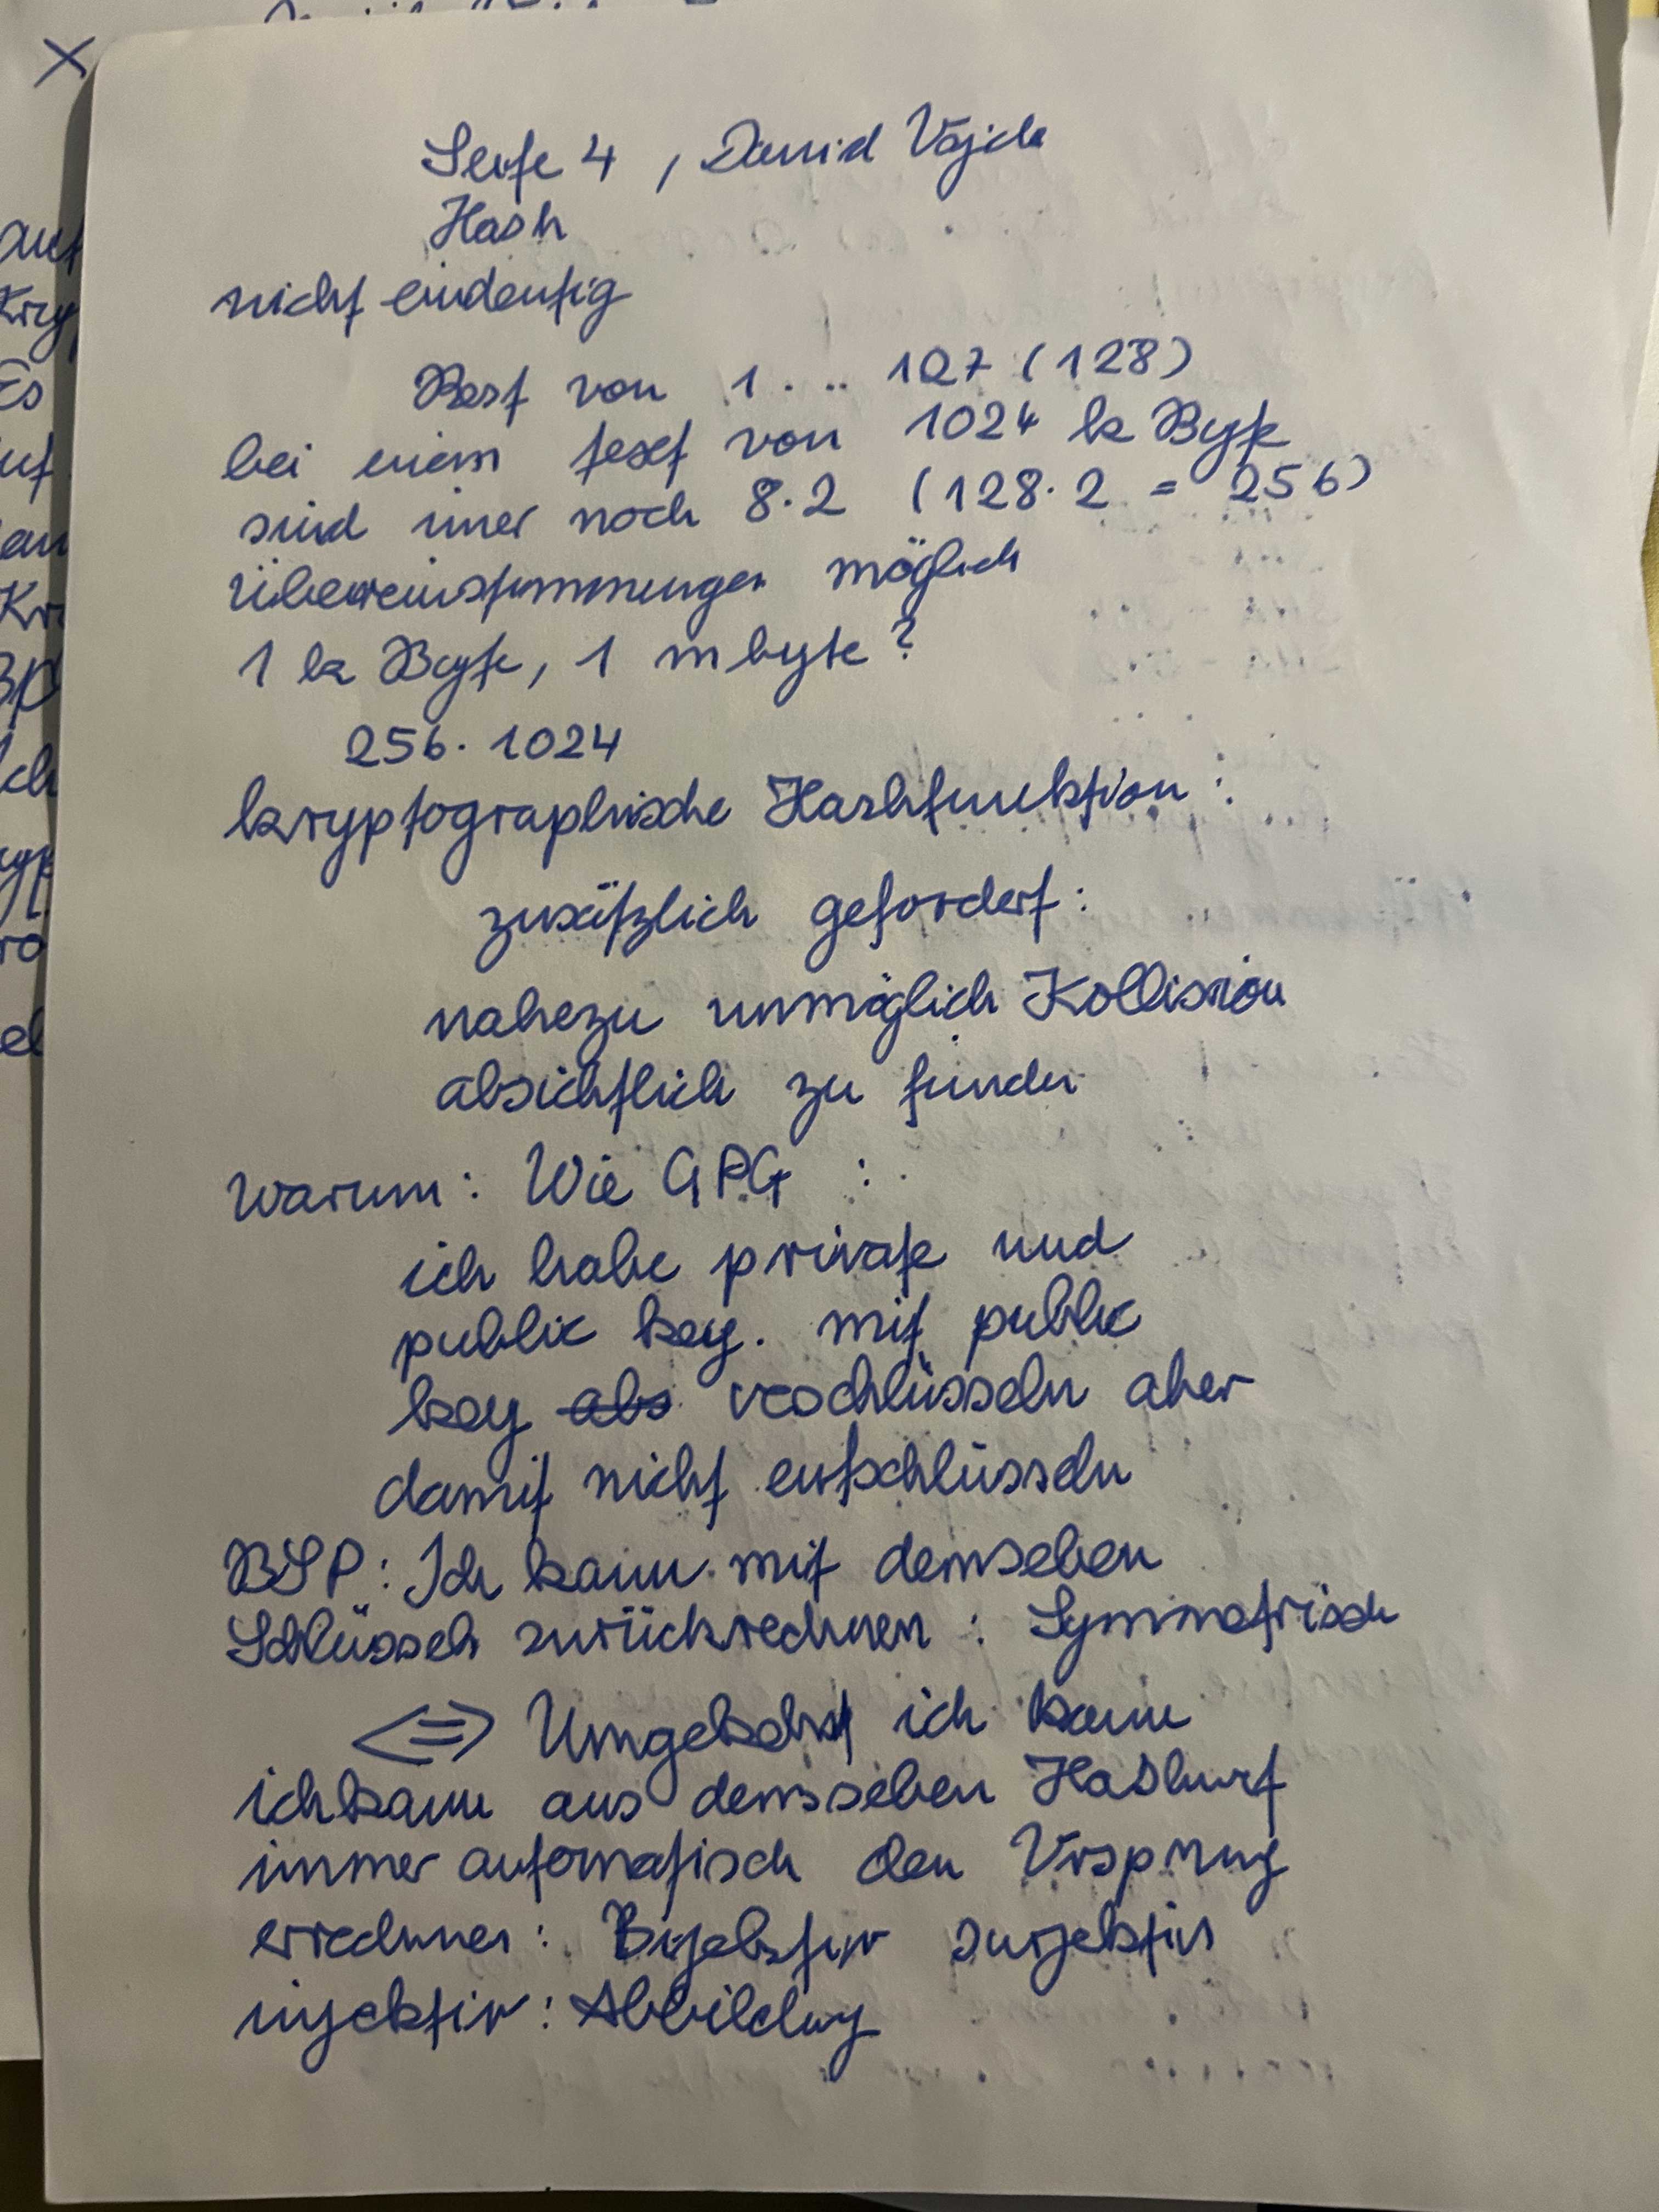 Seite 4, David Vajda
Hash
nicht eindeutig
Rest von 1 . .. 127 (128)
bei einem text von 1024 k Byte
sind imer noch 8.2 (128.2 = 256)
Übereinstimmungen möglich
1 k Byte, 1 mbyte?
256. 1024
kryptographische Hashfunktion:
zusätzlich gefordert:
nahezu unmöglich Kollision
absichtlich zu finden
Warum: Wie GPG :
ich habe private und
public key. mit public
key abs verschlüsseln aber
damit nicht entschlüsseln
BSP: Ich kann mit demseben
Schlüsseln zurückrechnen : Symmetrisch
<=> Umgekehrt ich kann
ich kann aus demsseben Hashwert
immer automatisch den Ursprung
errechnen: Bijektiv surjektiv
injektiv: Abbildung
X
auf
Kry
Es
uf
an
Kr